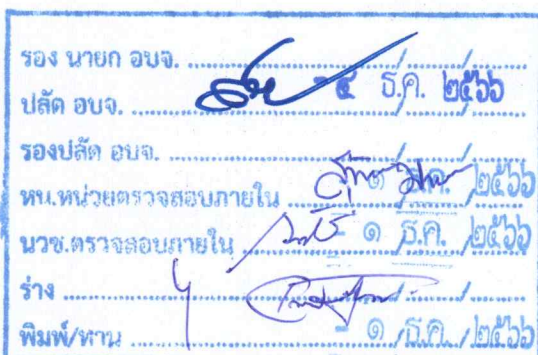 รอง นายก อบจ. ............/....../......
ปลัด อบจ. ............ - ๔ ธ.ค. ๒๕๖๖
รองปลัด อบจ. ............/....../......
หน.หน่วยตรวจสอบภายใน ............ ๑ ธ.ค. ๒๕๖๖
นวช.ตรวจสอบภายใน ............ - ๑ /ธ.ค. /๒๕๖๖
ร่าง ............/....../......
พิมพ์/ทาน ............ - ๑ /ธ.ค. /๒๕๖๖